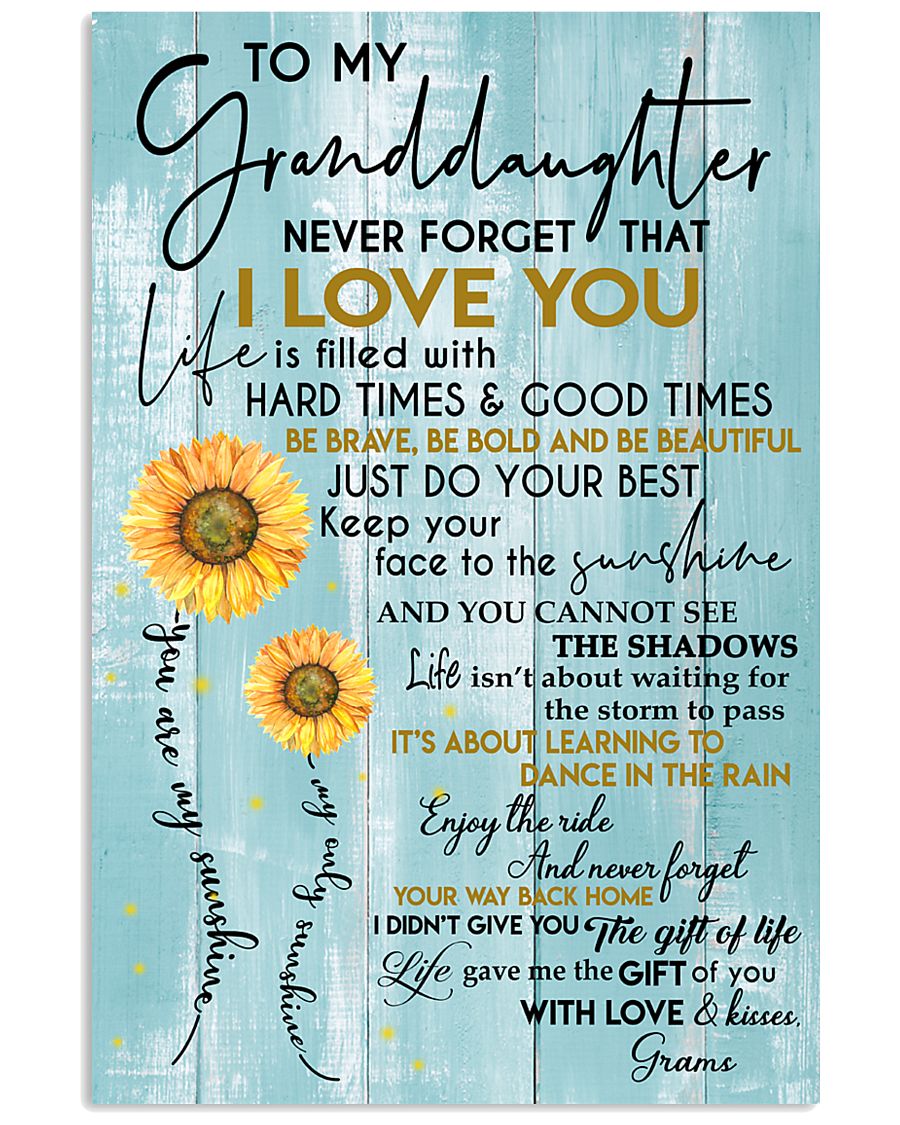 TO MY
Granddaughter
NEVER FORGET THAT
I LOVE YOU
Life is filled with
HARD TIMES & GOOD TIMES
BE BRAVE, BE BOLD AND BE BEAUTIFUL
JUST DO YOUR BEST
Keep your
face to the sunshine
AND YOU CANNOT SEE
THE SHADOWS
Life isn't about waiting for
the storm to pass
IT'S ABOUT LEARNING TO
DANCE IN THE RAIN
Enjoy the ride
And never forget
YOUR WAY BACK HOME
I DIDN'T GIVE YOU The gift of life
Life gave me the GIFT of you
WITH LOVE & kisses,
Grams
you are my sunshine
my only sunshine